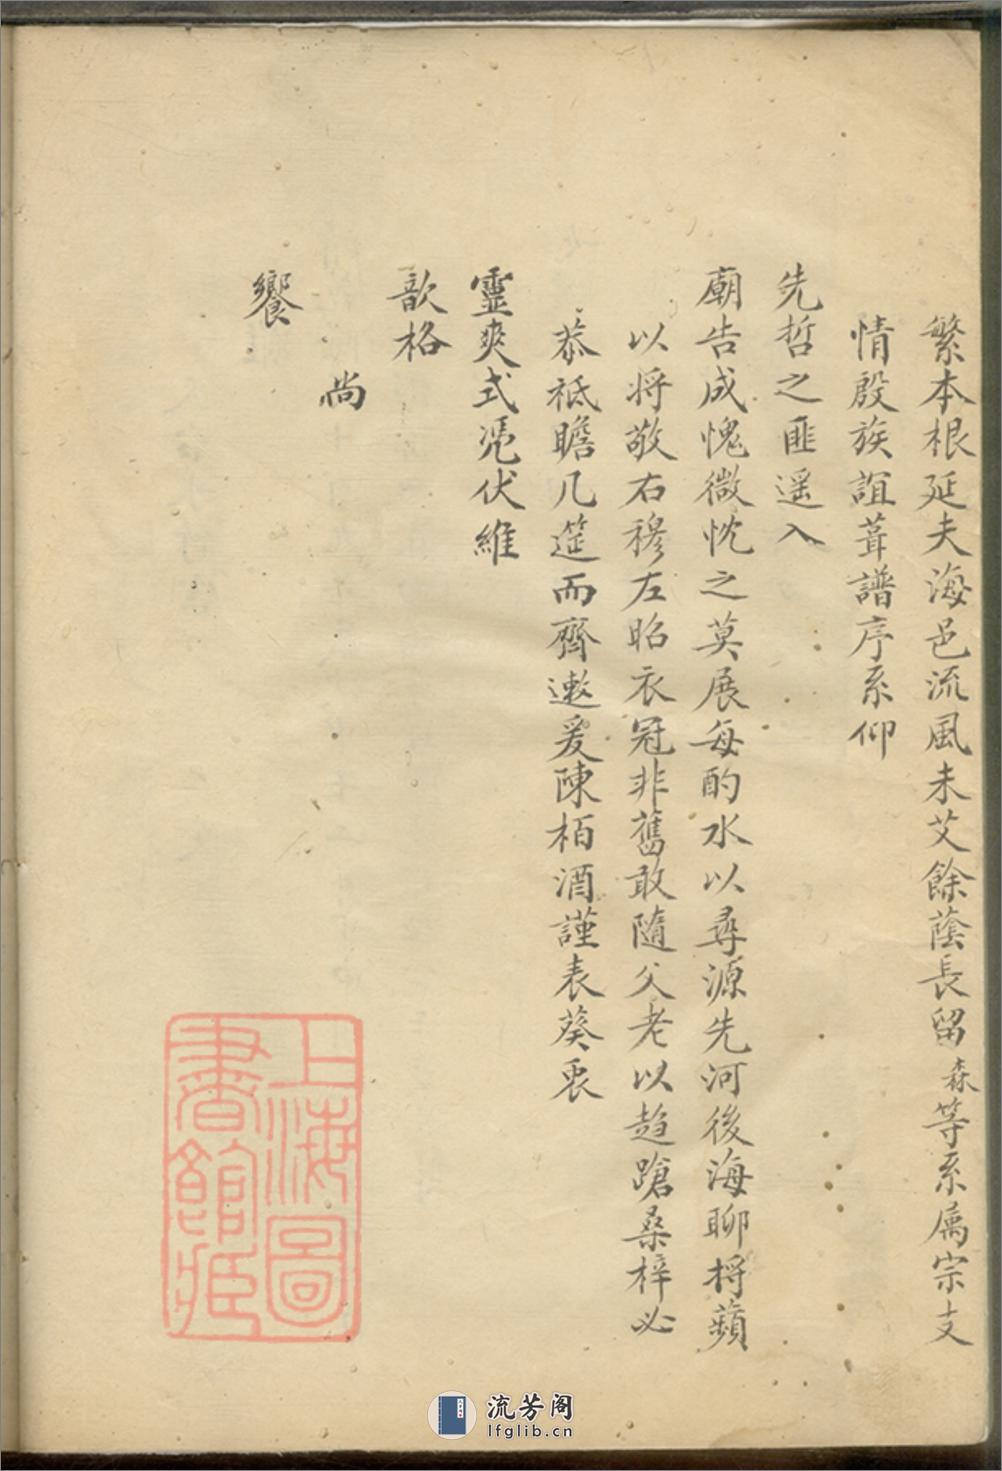 繁本根延夫海邑流風未艾餘蔭長留森等系属宗支
情殷族誼葺譜序系仰
先哲之匪遥入
廟告成愧微忱之莫展每酌水以尋源先河後海聊捋蘋
以将敬右穆左昭衣冠非舊敢隨父老以趋蹌桑梓必
恭袛瞻几筵而齊遬爰陳栢酒謹表葵衷
靈爽式凭伏維
歆格
尚
饗
上海圖
書館藏
流芳阁
lfglib.cn